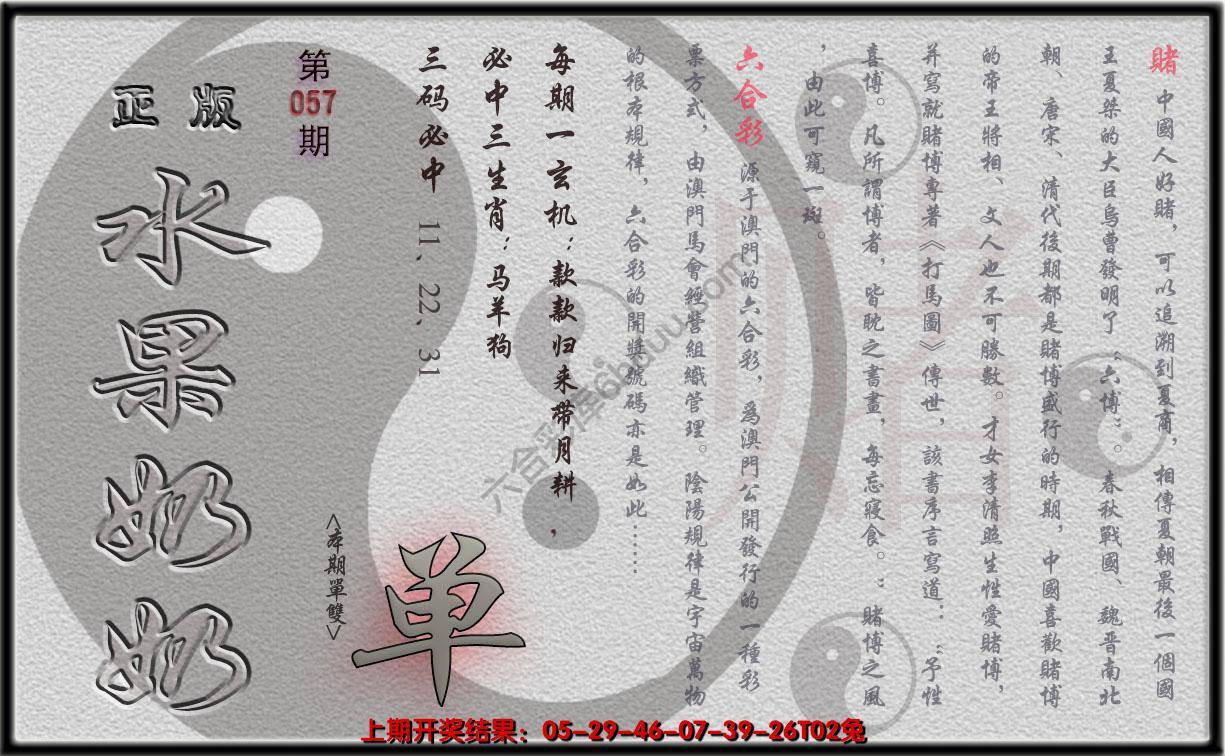 賭 中國人好賭，可以追溯到夏商，相傳夏朝最後一個國
王夏桀的大臣烏曹發明了“六博”。春秋戰國、魏晋南北
朝、唐宋、清代後期都是賭博盛行的時期，中國喜歡賭博
的帝王將相、文人也不可勝數。才女李清照生性愛賭博，
并寫就賭博專著《打馬圖》傳世，該書序言寫道：“予性
喜博。凡所謂博者，皆耽之晝晝，每忘寢食。”賭博之風
，由此可窺一斑。
六合彩 源于澳門的六合彩，爲澳門公開發行的一種彩
票方式，由澳門馬會經營組織管理。陰陽規律是宇宙萬物
的根本規律，六合彩的開獎號碼亦是如此……
每期一玄机：款款归来带月耕，
必中三生肖：马羊狗
三码必中 11、22、31
第
057
期
正版
水果奶奶
<本期單雙>
单
六合彩库6hduu.com
上期开奖结果：05-29-46-07-39-26T02兔